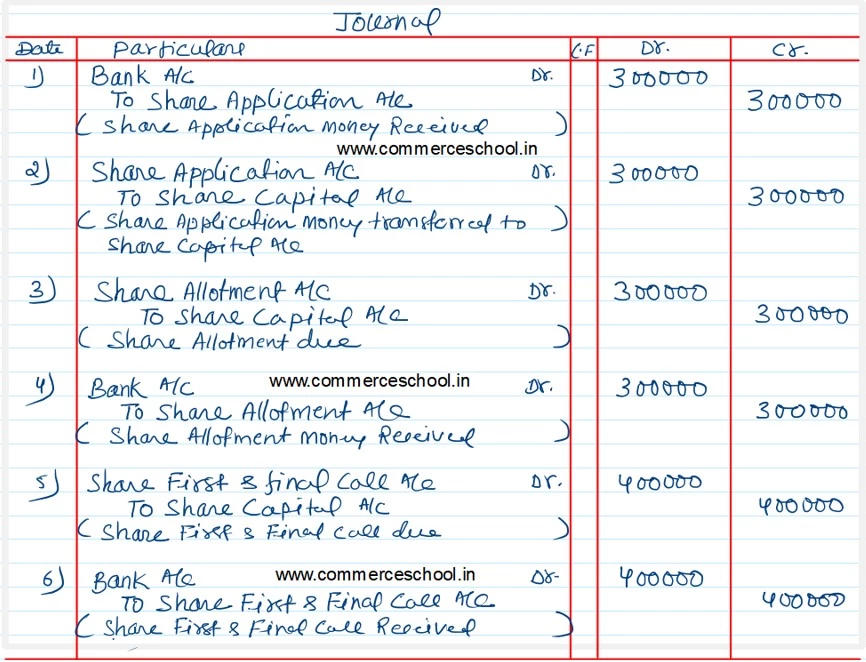 Journal
Date Particulars L.F Dr. Cr.
1) Bank A/c Dr. 300000
To Share Application A/c 300000
( Share Application Money Received )
www.commerceschool.in
2) Share Application A/c Dr. 300000
To Share Capital A/c 300000
( Share Application Money transferred to )
Share Capital A/c
3) Share Allotment A/c Dr. 300000
To Share Capital A/c 300000
( Share Allotment due )
4) Bank A/c www.commerceschool.in Dr. 300000
To Share Allotment A/c 300000
( Share Allotment Money Received )
5) Share First & final Call A/c Dr. 400000
To Share Capital A/c 400000
( Share First & Final Call due )
6) Bank A/c www.commerceschool.in Dr- 400000
To Share First & Final Call A/c 400000
( Share First & Final Call Received )